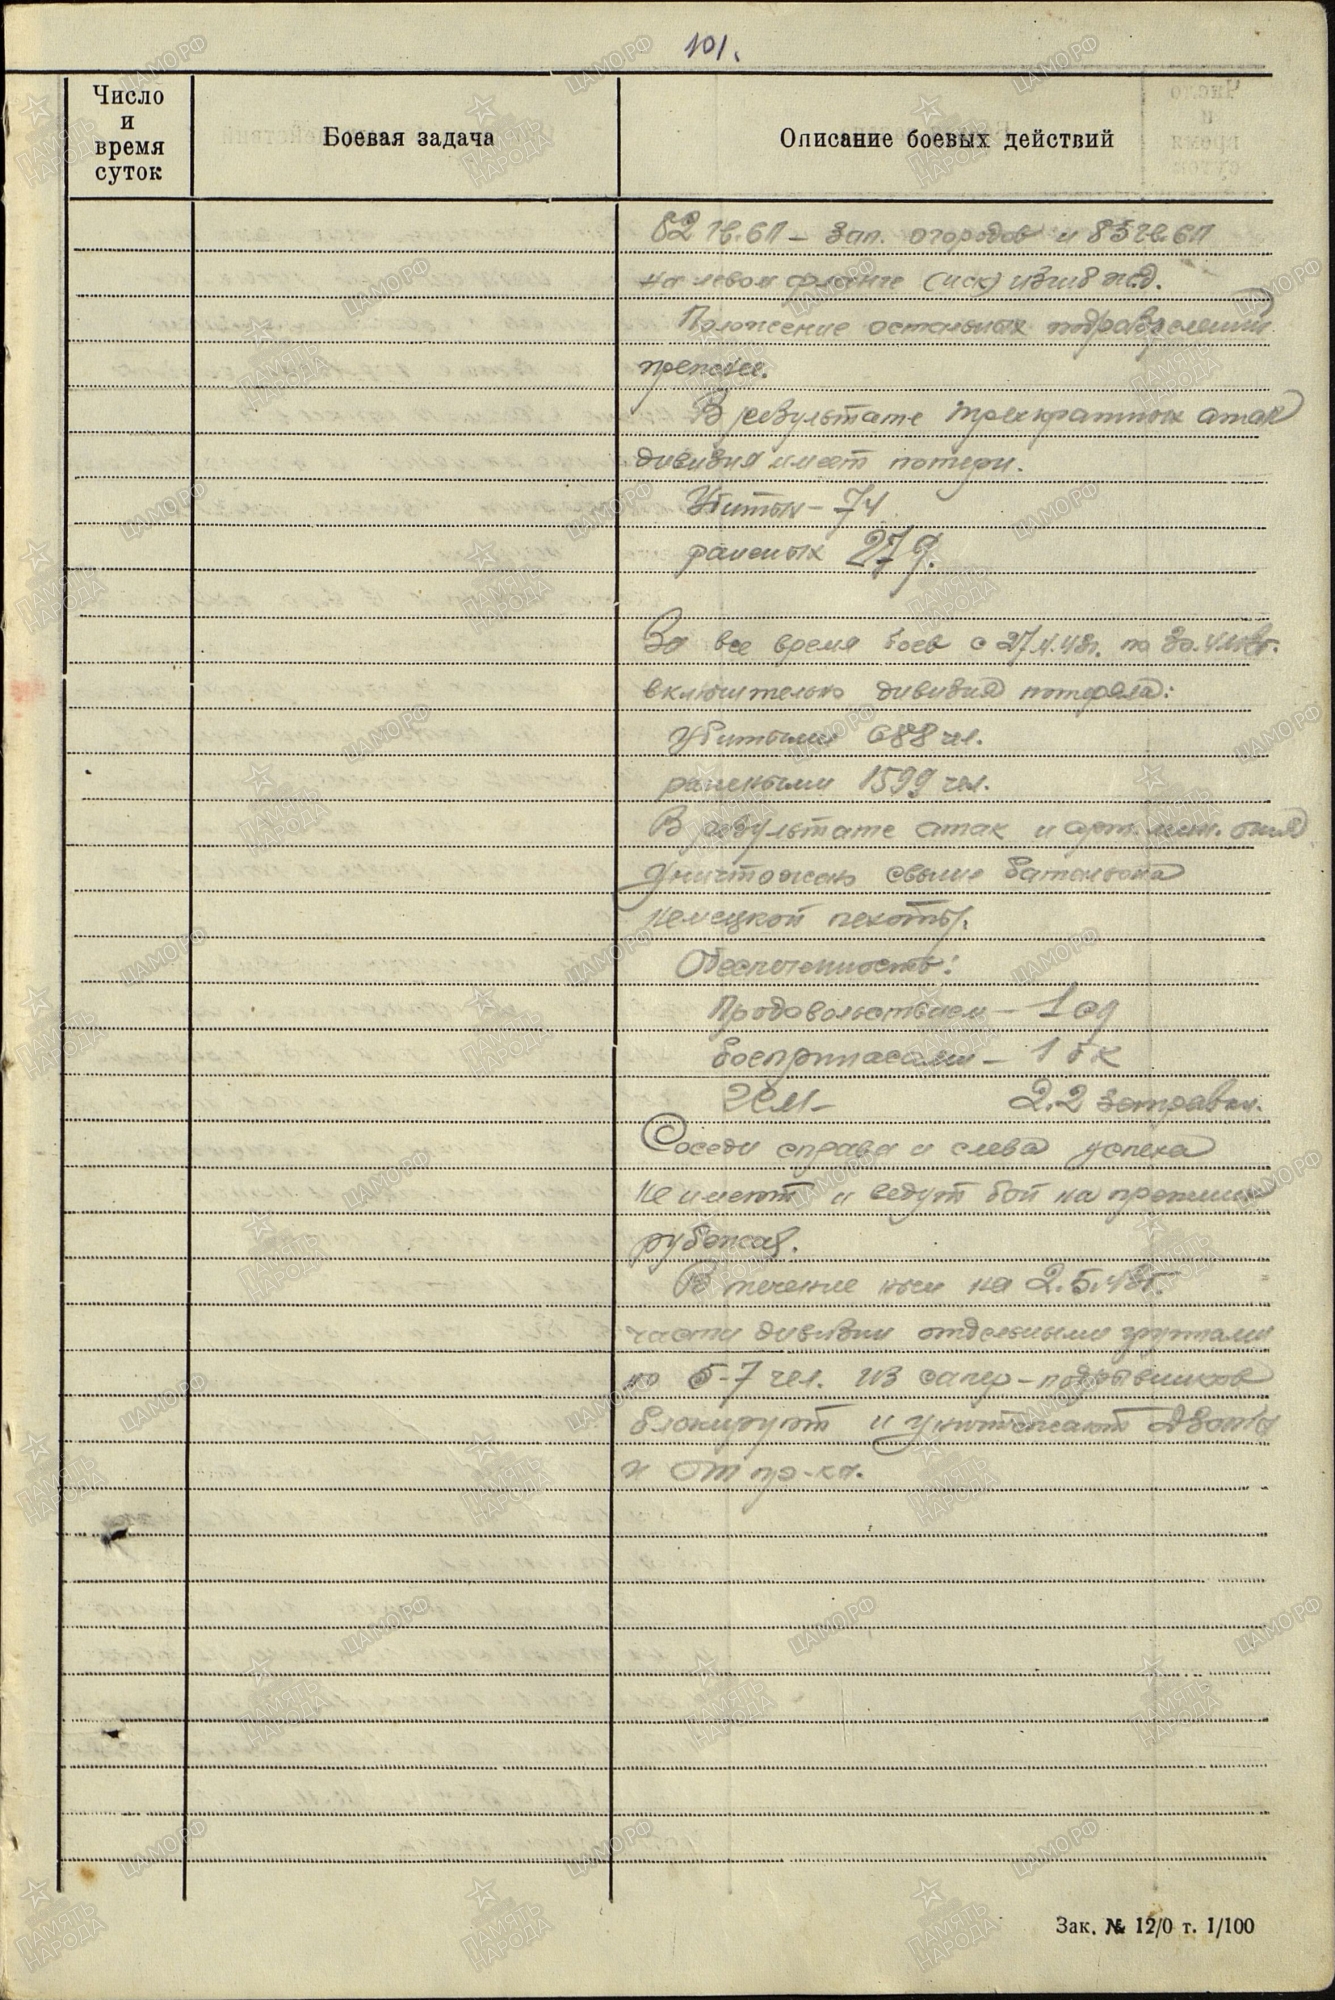 101.
Число
и
время
суток
Боевая задача
Описание боевых действий
82 гв. СП – зап. огородов и 83 гв. СП
на левом фланге (иск) изгиб ж.д.
Положение остальных подразделений
прежнее.
В результате трехкратных атак
дивизия имеет потери.
Убитых – 74
раненых 279.
За все время боев с 27.4.43г. по 30.4.43г.
включительно дивизия потеряла:
убитыми 688 чел.
ранеными 1599 чел.
В результате атак и арт. мин. огня
уничтожено свыше батальона
немецкой пехоты.
Обеспеченность:
Продовольствием – 1 сд
боеприпасами – 1 бк
ГСМ – 2.2 заправки.
Соседи справа и слева успеха
не имеют и ведут бой на прежних
рубежах.
В течение ночи на 2.5.43г.
части дивизии отдельными группами
по 5-7 чел. из сапер-подрывников
блокируют и уничтожают ДЗОТы
и ОТ пр-ка.
Зак. № 12/0 т. 1/100